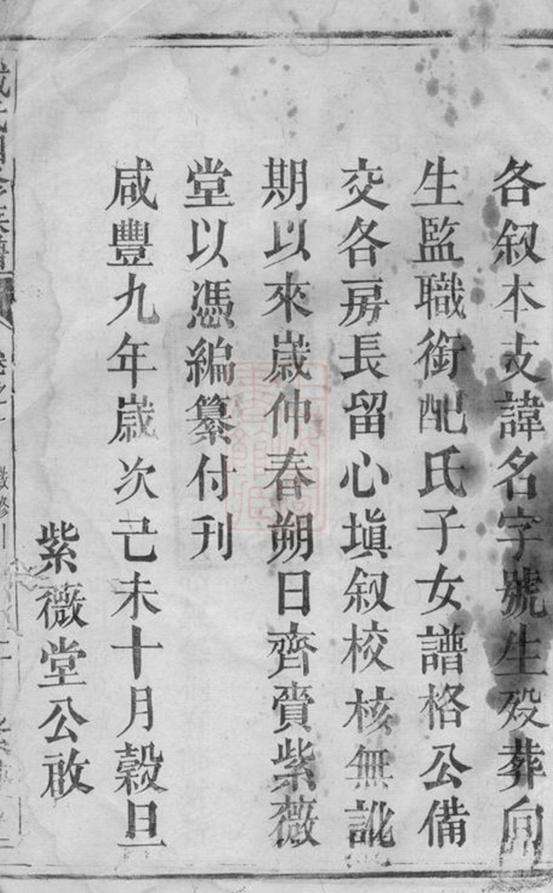 各叙本支諱名字號生殁葬向
生監職銜配氏子女譜格公備
交各房長留心填叙校核無訛
期以來歲仲春朔日齊賫紫薇
堂以憑編纂付刊
咸豐九年歲次己未十月穀旦
紫薇堂公啟